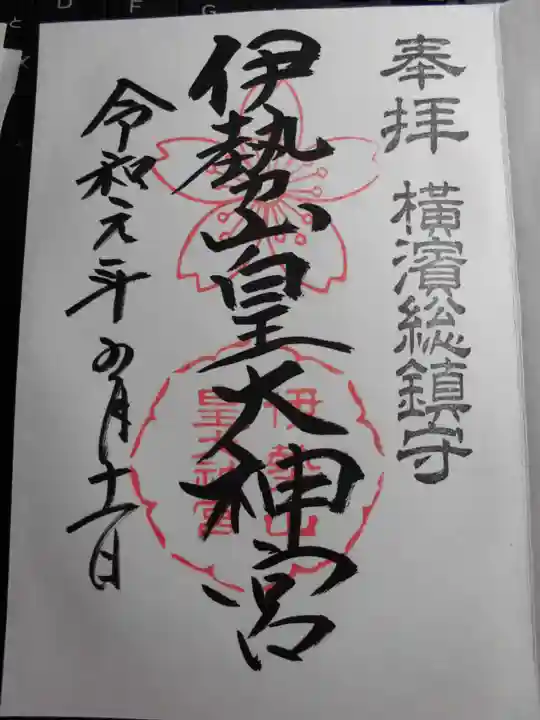 奉拝
横濱総鎮守
伊勢山皇大神宮
伊勢山
皇大神宮
令和元年 月十一日